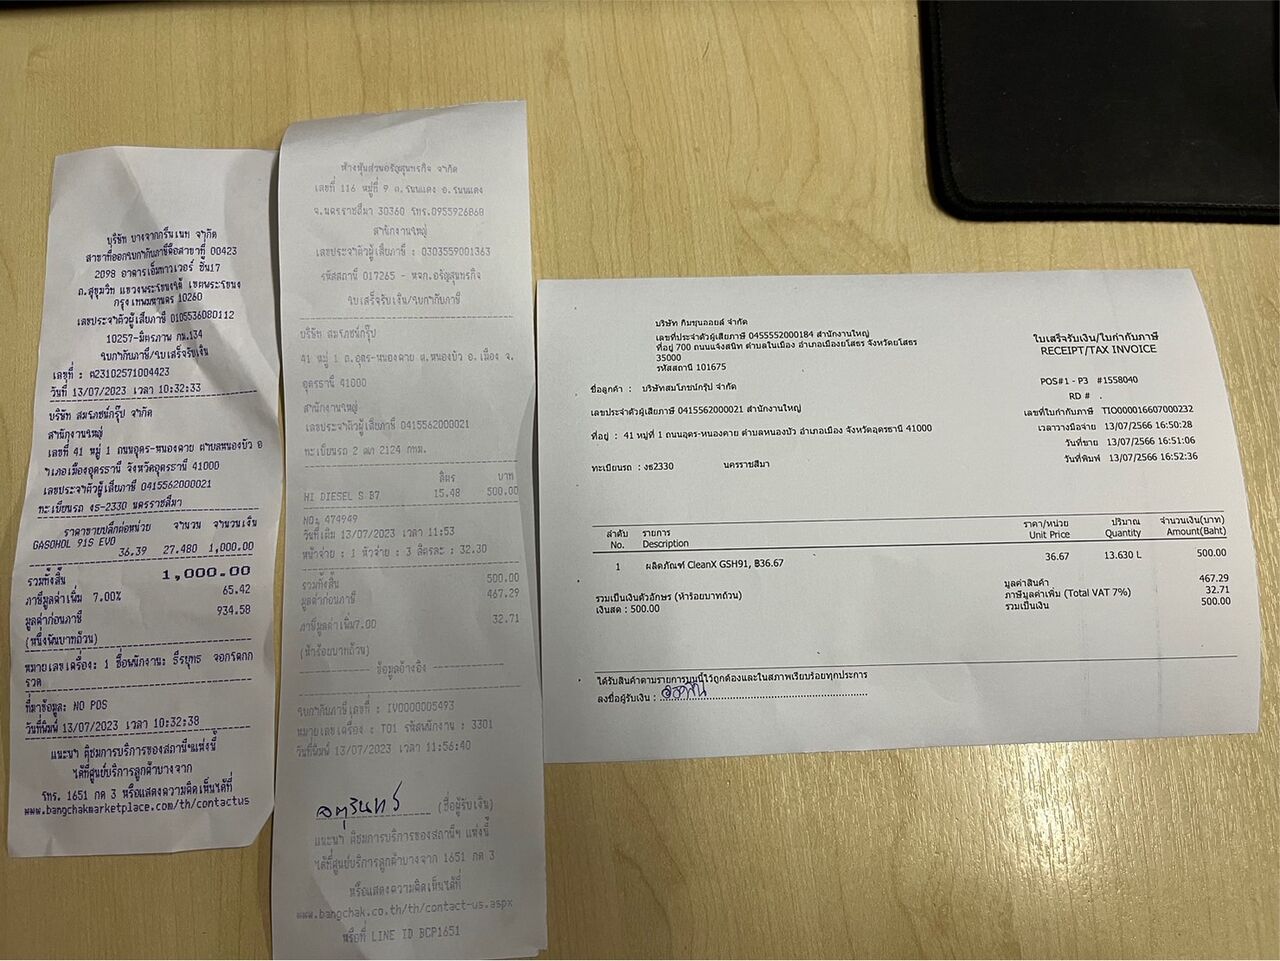 บริษัท บางจากกรีนเนท จำกัด
สาขาที่ออกใบกำกับภาษีคือสาขาที่ 00423
2098 อาคารเอ็มทาวเวอร์ ชั้น17
ถ.สุขุมวิท แขวงพระโขนงใต้ เขตพระโขนง
กรุงเทพมหานคร 10260
เลขประจำตัวผู้เสียภาษี 0105536080112
10257-มิตรภาพ กม.134
ใบกำกับภาษี/ใบเสร็จรับเงิน
เลขที่ : ค23102571004423
วันที่ 13/07/2023 เวลา 10:32:33
บริษัท สมโภชน์กรุ๊ป จำกัด
สำนักงานใหญ่
เลขที่ 41 หมู่ 1 ถนนอุดร-หนองคาย ตำบลหนองบัว อ
ำเภอเมืองอุดรธานี จังหวัดอุดรธานี 41000
เลขประจำตัวผู้เสียภาษี 0415562000021
ทะเบียนรถ งธ-2330 นครราชสีมา
ราคาขายปลีกต่อหน่วย จำนวน จำนวนเงิน
GASOHOL 91S EVO
36.39 27.480 1,000.00
รวมทั้งสิ้น 1,000.00
ภาษีมูลค่าเพิ่ม 7.00% 65.42
มูลค่าก่อนภาษี 934.58
(หนึ่งพันบาทถ้วน)
หมายเลขเครื่อง: 1 ชื่อพนักงาน: ธีรยุทธ
ที่มาข้อมูล: NO POS
วันที่พิมพ์ 13/07/2023 เวลา 10:32:38
แนะนำ ติชมการบริการของสถานีฯแห่งนี้
ได้ที่ศูนย์บริการลูกค้าบางจาก
โทร. 1651 กด 3 หรือแสดงความคิดเห็นได้ที่
www.bangchakmarketplace.com/th/contactus
ห้างหุ้นส่วนอรัญสุนทรกิจ จำกัด
เลขที่ 116 หมู่ที่ 9 ต.โนนแดง อ.โนนแดง
จ.นครราชสีมา 30360 โทร.0955926868
สำนักงานใหญ่
เลขประจำตัวผู้เสียภาษี : 0303559001363
รหัสสถานี 017265 - หจก.อรัญสุนทรกิจ
ใบเสร็จรับเงิน/ใบกำกับภาษี
บริษัท สมโภชน์กรุ๊ป
41 หมู่ 1 ถ.อุดร-หนองคาย ต.หนองบัว อ.เมือง จ.
อุดรธานี 41000
สำนักงานใหญ่
เลขประจำตัวผู้เสียภาษี 0415562000021
ทะเบียนรถ 2 ฒภ 2124 กทม.
ลิตร บาท
HI DIESEL S B7 15.48 500.00
NO: 474949
วันที่เติม 13/07/2023 เวลา 11:53
หน้าจ่าย : 1 หัวจ่าย : 3 ลิตรละ : 32.30
รวมทั้งสิ้น 500.00
มูลค่าก่อนภาษี 467.29
ภาษีมูลค่าเพิ่ม7.00 32.71
(ห้าร้อยบาทถ้วน)
ข้อมูลอ้างอิง
ใบกำกับภาษีเลขที่ : IV0000005493
หมายเลขเครื่อง : T01 รหัสพนักงาน : 3301
วันที่พิมพ์ 13/07/2023 เวลา 11:56:40
(ชื่อผู้รับเงิน)
แนะนำ ติชมการบริการของสถานีฯ แห่งนี้
ได้ที่ศูนย์บริการลูกค้าบางจาก 1651 กด 3
หรือแสดงความคิดเห็นได้ที่
www.bangchak.co.th/th/contact-us.aspx
หรือที่ LINE ID BCP1651
บริษัท กิมชุนออยล์ จำกัด
เลขที่ประจำตัวผู้เสียภาษี 0455552000184 สำนักงานใหญ่
ที่อยู่ 700 ถนนแจ้งสนิท ตำบลในเมือง อำเภอเมืองยโสธร จังหวัดยโสธร
35000
รหัสสถานี 101675
ใบเสร็จรับเงิน/ใบกำกับภาษี
RECEIPT/TAX INVOICE
ชื่อลูกค้า : บริษัทสมโภชน์กรุ๊ป จำกัด
เลขประจำตัวผู้เสียภาษี 0415562000021 สำนักงานใหญ่
ที่อยู่ : 41 หมู่ที่ 1 ถนนอุดร-หนองคาย ตำบลหนองบัว อำเภอเมือง จังหวัดอุดรธานี 41000
ทะเบียนรถ : งธ2330 นครราชสีมา
POS#1 - P3 #1558040
RD # .
เลขที่ใบกำกับภาษี TIO000016607000232
เวลาวางมือจ่าย 13/07/2566 16:50:28
วันที่ขาย 13/07/2566 16:51:06
วันที่พิมพ์ 13/07/2566 16:52:36
ลำดับ รายการ ราคา/หน่วย ปริมาณ จำนวนเงิน(บาท)
No. Description Unit Price Quantity Amount(Baht)
1 ผลิตภัณฑ์ CleanX GSH91, ฿36.67 36.67 13.630 L 500.00
มูลค่าสินค้า 467.29
รวมเป็นเงินตัวอักษร (ห้าร้อยบาทถ้วน) ภาษีมูลค่าเพิ่ม (Total VAT 7%) 32.71
เงินสด : 500.00 รวมเป็นเงิน 500.00
ได้รับสินค้าตามรายการบนนี้ไว้ถูกต้องและในสภาพเรียบร้อยทุกประการ
ลงชื่อผู้รับเงิน :